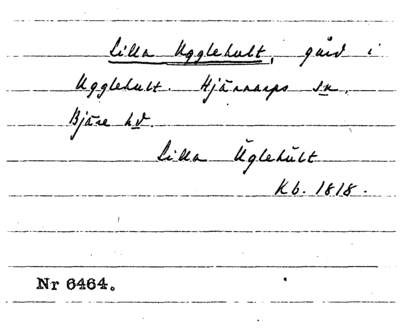 Lilla Ugglehult, gård i
Ugglehult. Hjärnarps sn.
Bjäre hd.
Lilla Üglehült
Kb. 1818.
Nr 6464.